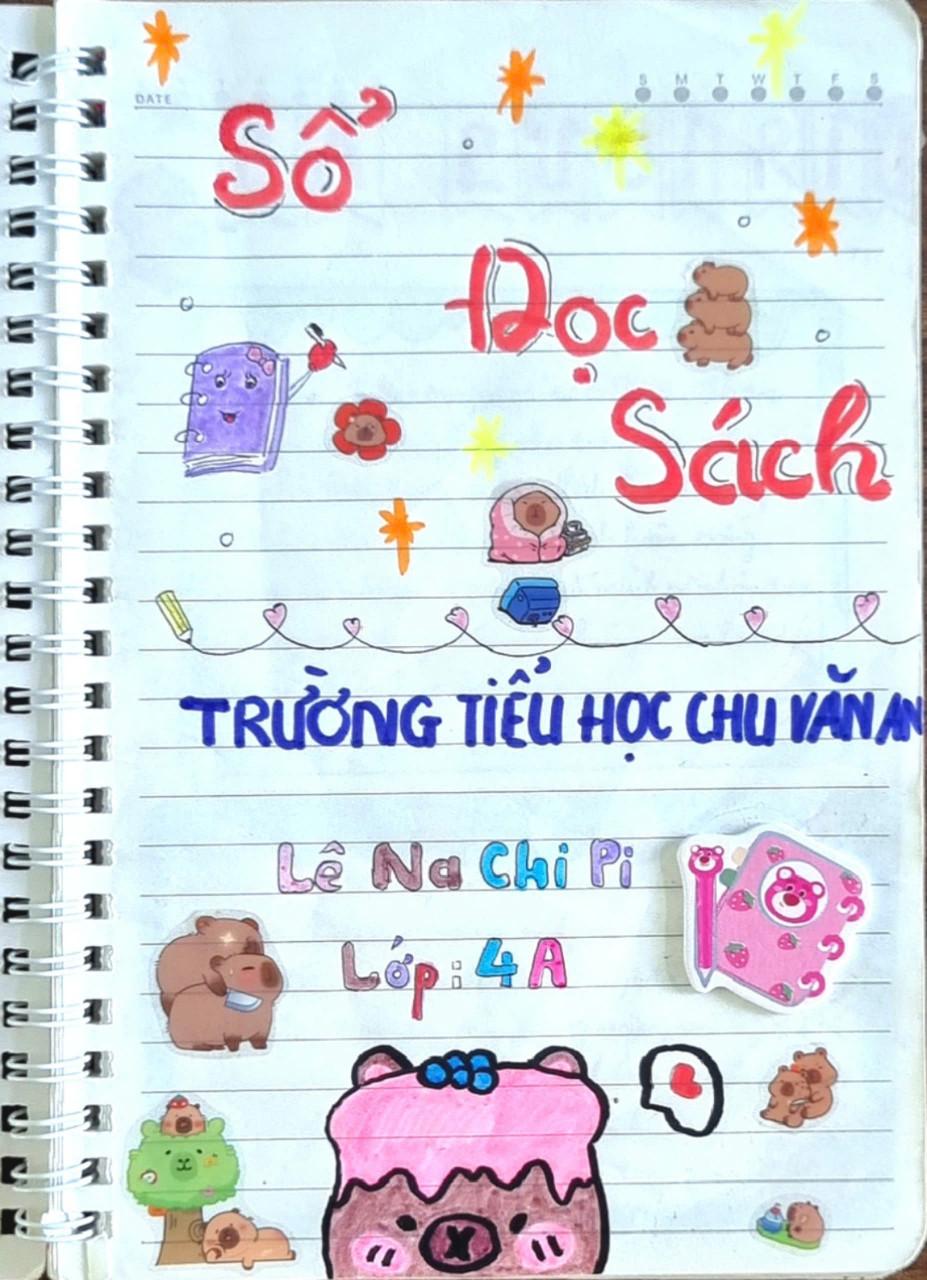 DATE
S M T W T F S
Sổ
Đọc
Sách
TRƯỜNG TIỂU HỌC CHU VĂN AN
Lê Na Chi Pi
Lớp: 4A